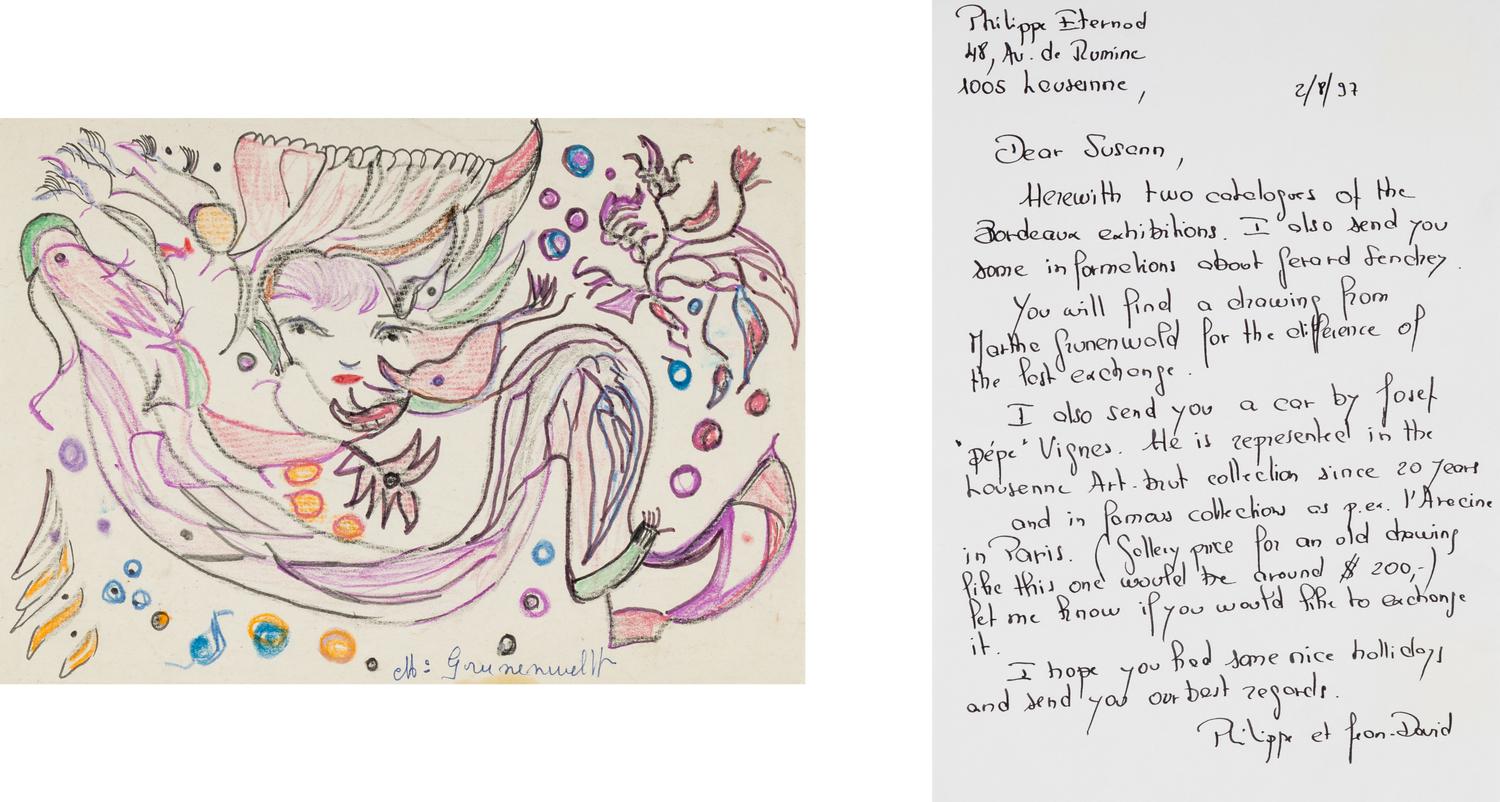 M: Grunenwaldt
Philippe Eternod
48, Av. de Rumine
1005 Lausanne,
2/8/97
Dear Susann,
Herewith two catalogues of the
Bordeaux exhibitions. I also send you
some informations about Gerard Sendrey.
You will find a drawing from
Marthe Grunenwald for the difference of
the last exchange.
I also send you a car by Josef
"Pépé" Vignes. He is represented in the
Lausanne Art-brut collection since 20 years
and in famous collections as p.ex. l'Aracine
in Paris. (Gallery price for an old drawing
like this one would be around $ 200,-)
Let me know if you would like to exchange
it.
I hope you had some nice hollidays
and send you our best regards.
Philippe et Jean-David